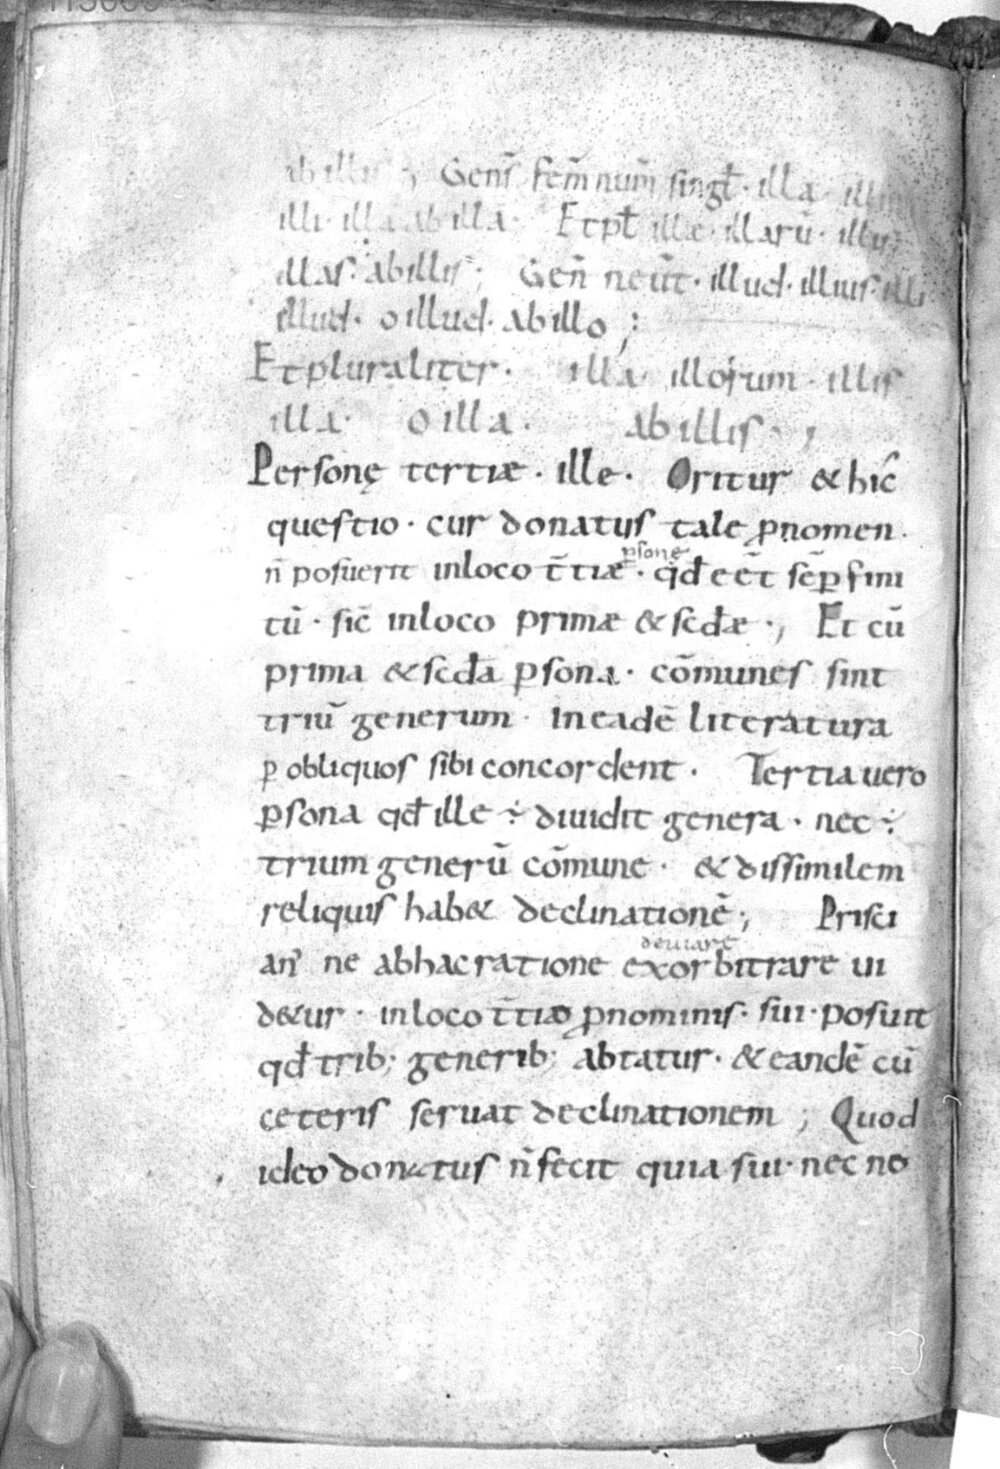 ab illis ; Genꝰ fem̄ num̄ singł · illa · illius
illi · illā ab illa · Et pł illæ · illarū · illis
illas · ab illis ; Gen̄ neūt · illud · illius · illi
illud · o illud · ab illo ;
Et pluraliter · illa illorum · illis
illa · o illa · ab illis · ;
Personę tertiæ · ille · Oritur & hic̄
questio · cur donatus tale ꝓnomen ·
n̄ posuerit in loco t̄tiæ ꝑsonę · qđ eēt sēꝑ fini
tū · sic̄ in loco primæ & scđæ · ; Et cū
prima & scđa ꝑsona · cōmunes sint
triū generum · In eadē literatura
ꝑ obliquos sibi concordent · Tertia uero
ꝑsona qđ ille ÷ diuidit genera · nec ÷
trium generū cōmune · & dissimilem
reliquis hab& declinationē ; Prisci
anꝰ ne ab hac ratione exorbitrare ui
deuiare
d&ur · in loco t̄tio ꝓnominis · sui · posuit
qđ trib; generib; abtatur · & eandē cū
ceteris seruat declinationem ; Quod
ideo donatus n̄ fecit quia sui · nec no